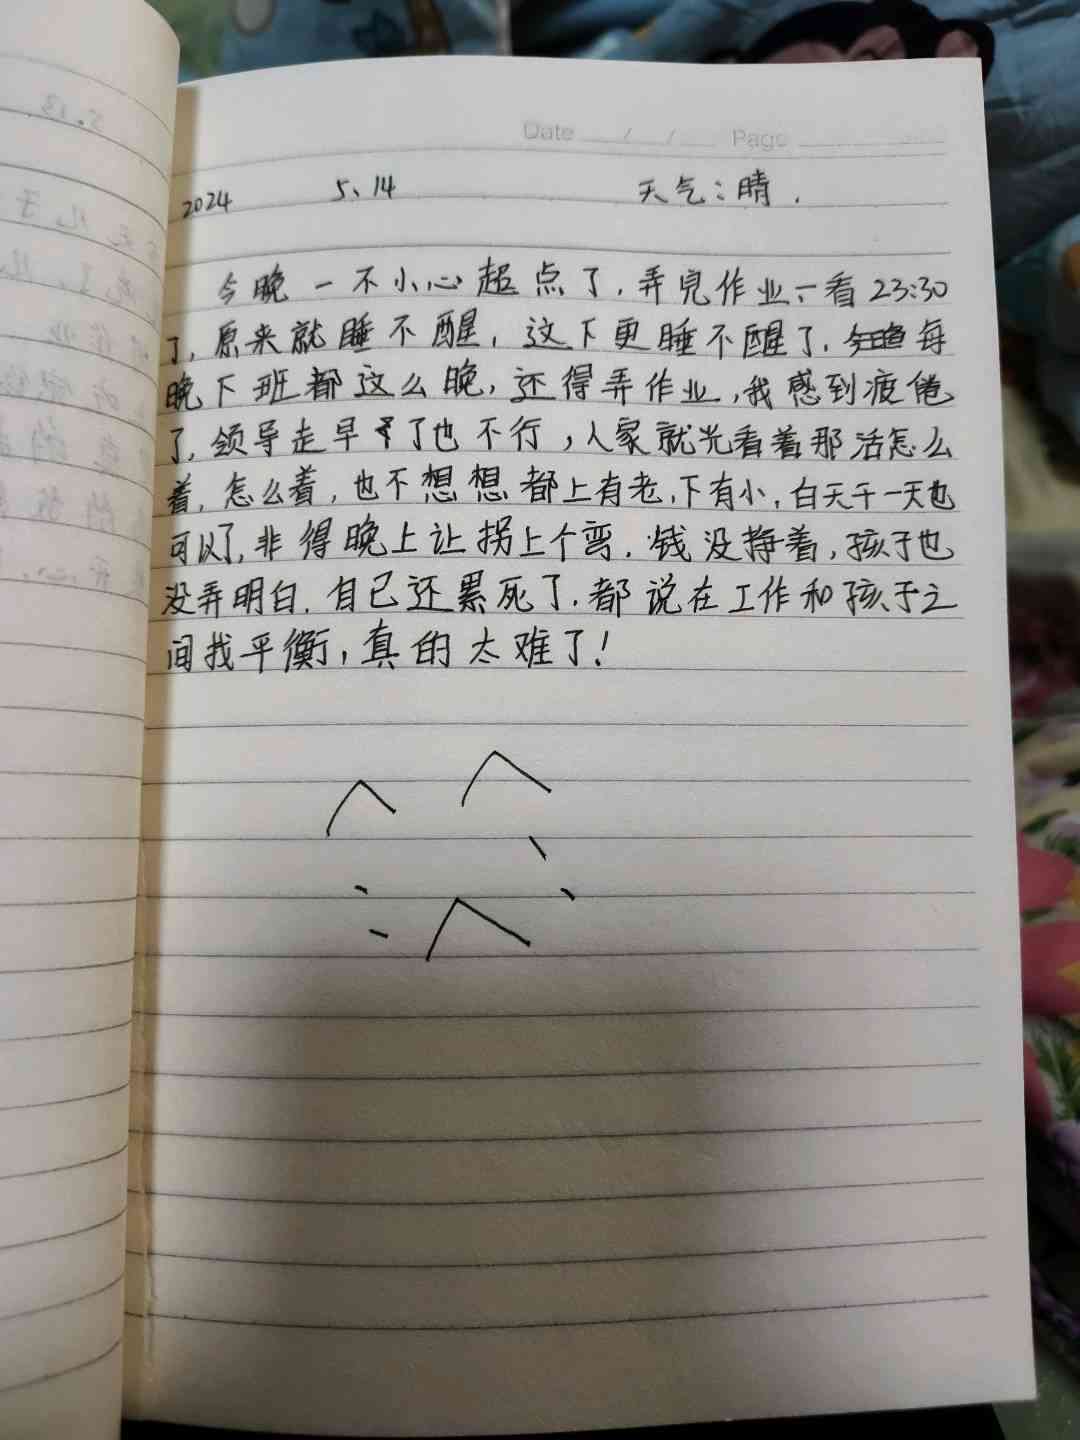 5.13
Date / / Page
2024 5、14 天气：晴．
今晚一不小心超点了，弄完作业一看23:30
了，原来就睡不醒，这下更睡不醒了．每
晚下班都这么晚，还得弄作业，我感到疲倦
了，领导走早了也不行，人家就光看着那活怎么
着，怎么着，也不想想都上有老，下有小，白天干一天也
可以了，非得晚上让拐上个弯．钱没挣着，孩子也
没弄明白．自己还累死了．都说在工作和孩子之
间找平衡，真的太难了！